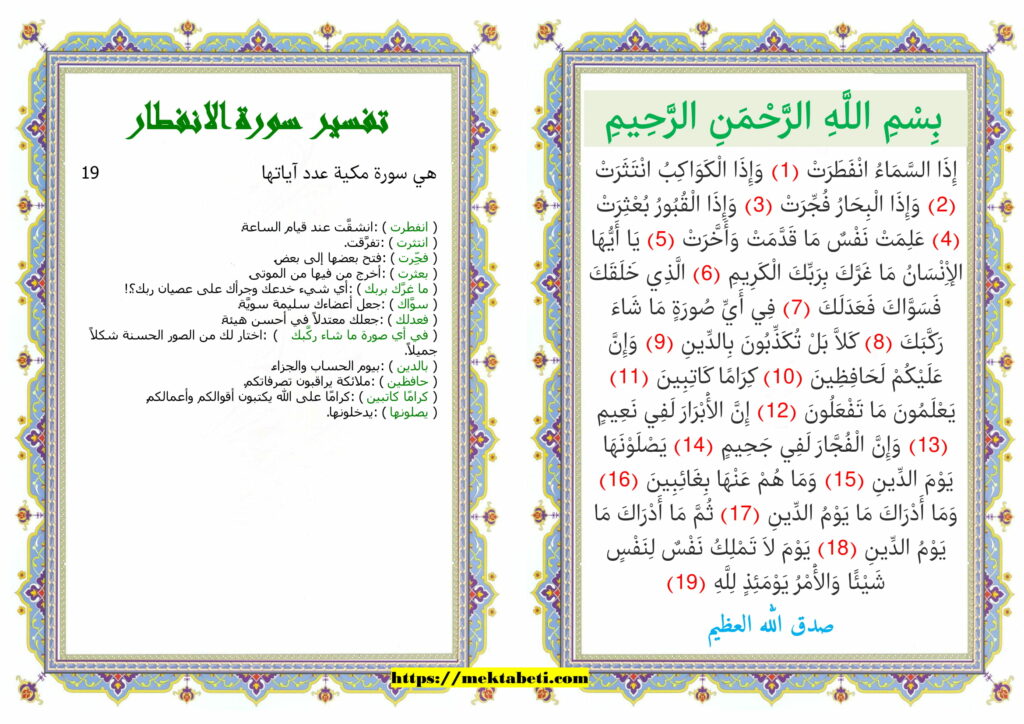 بِسْمِ اللَّهِ الرَّحْمَنِ الرَّحِيمِ
إِذَا السَّمَاءُ انْفَطَرَتْ (1) وَإِذَا الْكَوَاكِبُ انْتَثَرَتْ
(2) وَإِذَا الْبِحَارُ فُجِّرَتْ (3) وَإِذَا الْقُبُورُ بُعْثِرَتْ
(4) عَلِمَتْ نَفْسٌ مَا قَدَّمَتْ وَأَخَّرَتْ (5) يَا أَيُّهَا
الإِنْسَانُ مَا غَرَّكَ بِرَبِّكَ الْكَرِيمِ (6) الَّذِي خَلَقَكَ
فَسَوَّاكَ فَعَدَلَكَ (7) فِي أَيِّ صُورَةٍ مَا شَاءَ
رَكَّبَكَ (8) كَلاَّ بَلْ تُكَذِّبُونَ بِالدِّينِ (9) وَإِنَّ
عَلَيْكُمْ لَحَافِظِينَ (10) كِرَامًا كَاتِبِينَ (11)
يَعْلَمُونَ مَا تَفْعَلُونَ (12) إِنَّ الأَبْرَارَ لَفِي نَعِيمٍ
(13) وَإِنَّ الْفُجَّارَ لَفِي جَحِيمٍ (14) يَصْلَوْنَهَا
يَوْمَ الدِّينِ (15) وَمَا هُمْ عَنْهَا بِغَائِبِينَ (16)
وَمَا أَدْرَاكَ مَا يَوْمُ الدِّينِ (17) ثُمَّ مَا أَدْرَاكَ مَا
يَوْمُ الدِّينِ (18) يَوْمَ لاَ تَمْلِكُ نَفْسٌ لِنَفْسٍ
شَيْئًا وَالأَمْرُ يَوْمَئِذٍ لِلَّهِ (19)
صدق الله العظيم
تفسير سورة الانفطار
هي سورة مكية عدد آياتها 19
( انفطرت ) :انشقَّت عند قيام الساعة.
( انتثرت ) :تفرَّقت.
( فجِّرت ) :فتح بعضها إلى بعض.
( بعثرت ) :أخرج من فيها من الموتى.
( ما غرَّك بربك ) :أي شيء خدعك وجرأك على عصيان ربك؟!
( سوَّاك ) :جعل أعضاءك سليمة سويَّة.
( فعدلك ) :جعلك معتدلاً في أحسن هيئة.
( في أي صورة ما شاء ركَّبك ) :اختار لك من الصور الحسنة شكلاً
جميلاً.
( بالدين ) :بيوم الحساب والجزاء.
( حافظين ) :ملائكة يراقبون تصرفاتكم.
( كرامًا كاتبين ) :كرامًا على الله يكتبون أقوالكم وأعمالكم.
( يصلونها ) :يدخلونها.
https://mektabeti.com